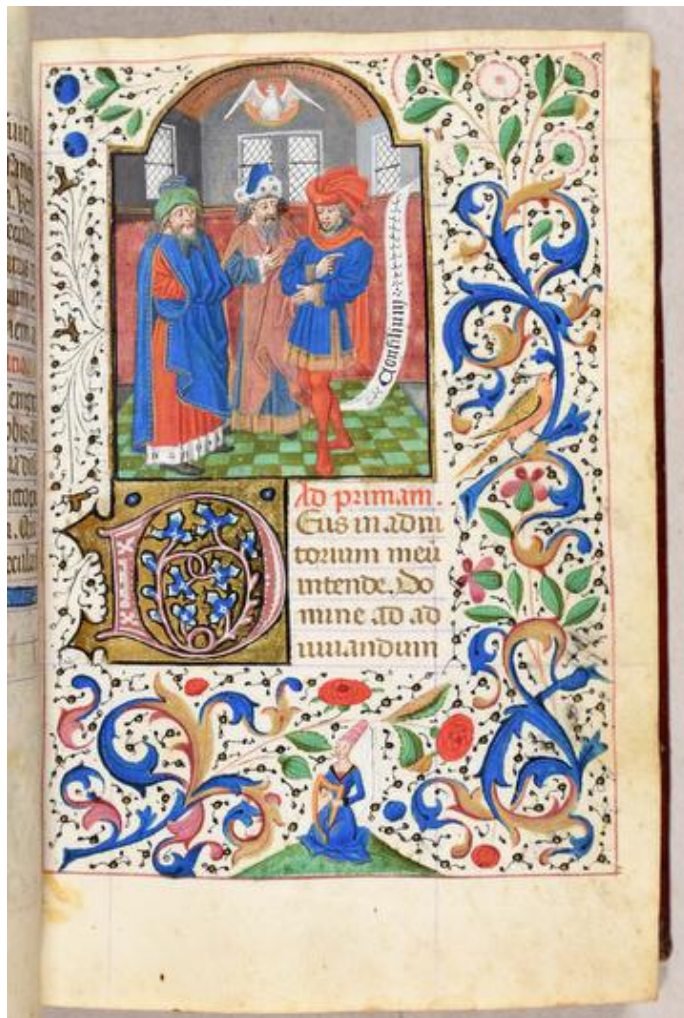 Consilium
Ad primam.
Eus in adiu
torium meū
intende. Do
mine ad ad
iuuandum